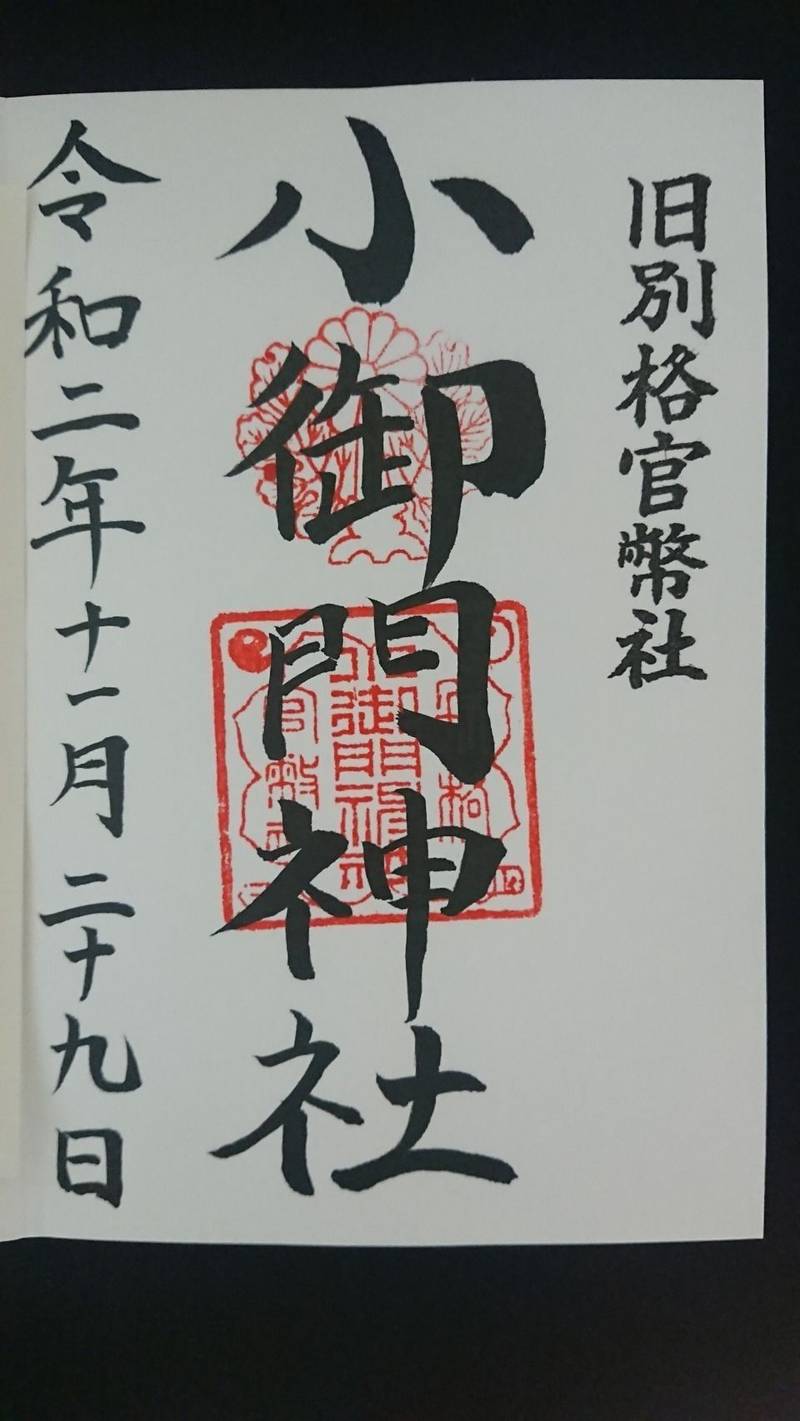 旧別格官幣社
小御門神社
令和二年十一月二十九日